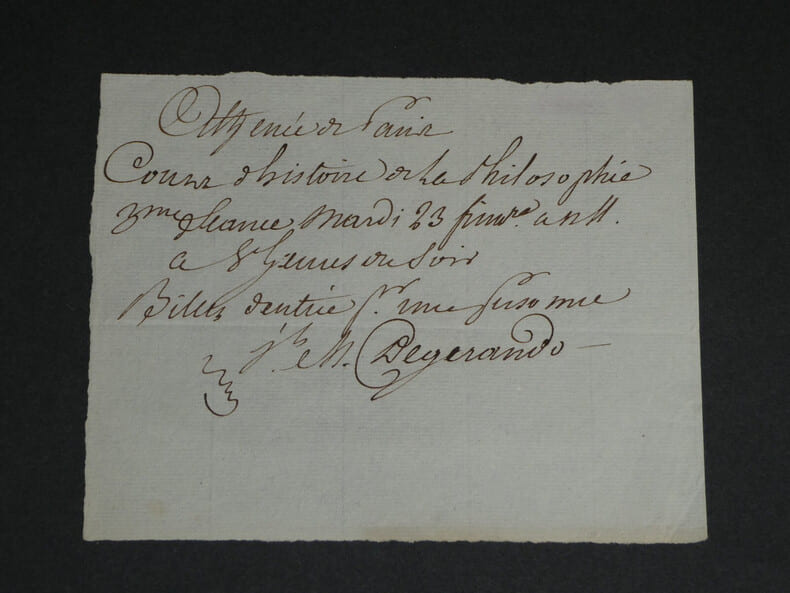 Athenée de Paris
Cours d'histoire de la Philosophie
3me séance Mardi 23 frimre. an 11.
a 8 heures du Soir
Billet d'entrée pr. une personne
jh. M. Degerando